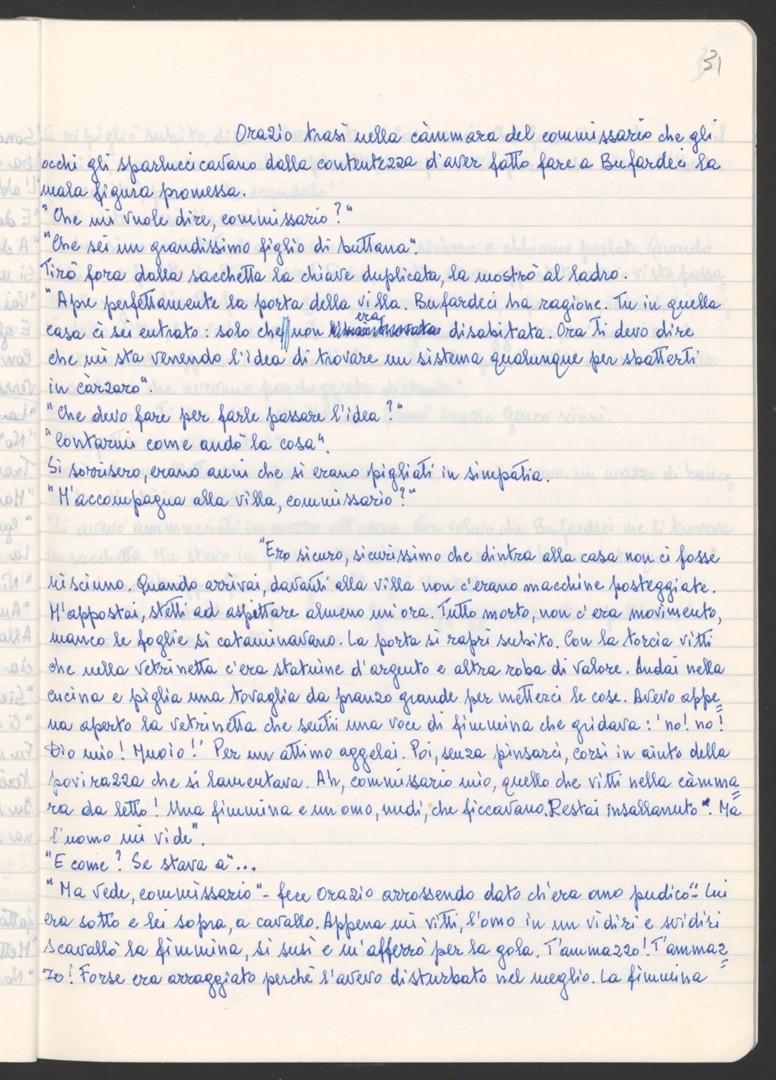 31
Orazio trasì nella càmmara del commissario che gli
occhi gli sparluccicavano dalla contentezza d'aver fatto fare a Bufardeci la
mala figura promessa.
"Che mi vuole dire, commissario?"
"Che sei un grandissimo figlio di buttana".
Tirò fora dalla sacchetta la chiave duplicata, la mostrò al ladro.
"Apre perfettamente la porta della villa. Bufardeci ha ragione. Tu in quella
casa ci sei entrato: solo che non era disabitata. Ora ti devo dire
che mi sta venendo l'idea di trovare un sistema qualunque per sbatterti
in càrzaro".
"Che devo fare per farle passare l'idea?"
"Contarmi come andò la cosa".
Si sorrisero, erano anni che si erano pigliati in simpatia.
"M'accompagna alla villa, commissario?"
"Ero sicuro, sicurissimo che dintra alla casa non ci fosse
nisciuno. Quando arrivai, davanti alla villa non c'erano macchine posteggiate.
M'appostai, stetti ad aspittare almeno un'ora. Tutto morto, non c'era movimento,
manco le foglie si cataminavano. La porta si raprì subito. Con la torcia vitti
che nella vetrinetta c'era statuine d'argento e altra roba di valore. Andai nella
cucina e piglia una tovaglia da pranzo grande per metterci le cose. Avevo appe=
na aperto la vetrinetta che sentii una voce di fimmina che gridava: 'no! no!
Dio mio! Muoio!' Per un attimo aggelai. Poi, senza pinsarci, corsi in aiuto della
povirazza che si lamentava. Ah, commissario mio, quello che vitti nella càmma=
ra da letto! Una fimmina e un omo, nudi, che ficcavano. Restai insallanuto". Ma=
l'uomo mi vide".
"E come? Se stava a"...
"Ma vede, commissario" - fece Orazio arrossendo dato ch'era omo pudico - "Lui
era sotto e lei sopra, a cavallo. Appena mi vitti, l'omo in un vidiri e svidiri
scavallò la fimmina, si susì e m'afferrò per la gola. T'ammazzo! T'ammaz=
zo! Forse era arraggiato perché l'avevo disturbato nel meglio. La fimmina